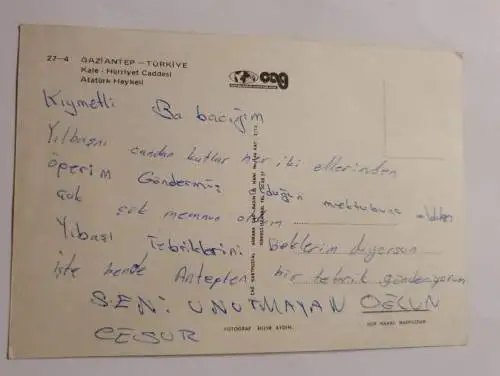 27-4 GAZİANTEP - TÜRKİYE
Kale - Hürriyet Caddesi
Atatürk Heykeli
cag
Kıymetli Ba bacığım
Yılbaşnı candan kutlar her iki ellerinden
öperim Göndermiş olduğun mektubunu aldım
çok çok memnun oldum
Yıbaşı Tebriklerini Beklerim diyorsun
işte bende Antepten bir tebrik gönderiyorum
SENİ UNUTMAYAN OĞLUN
CESUR
FOTOGRAF:
HER HAKKI MAHFUZDUR